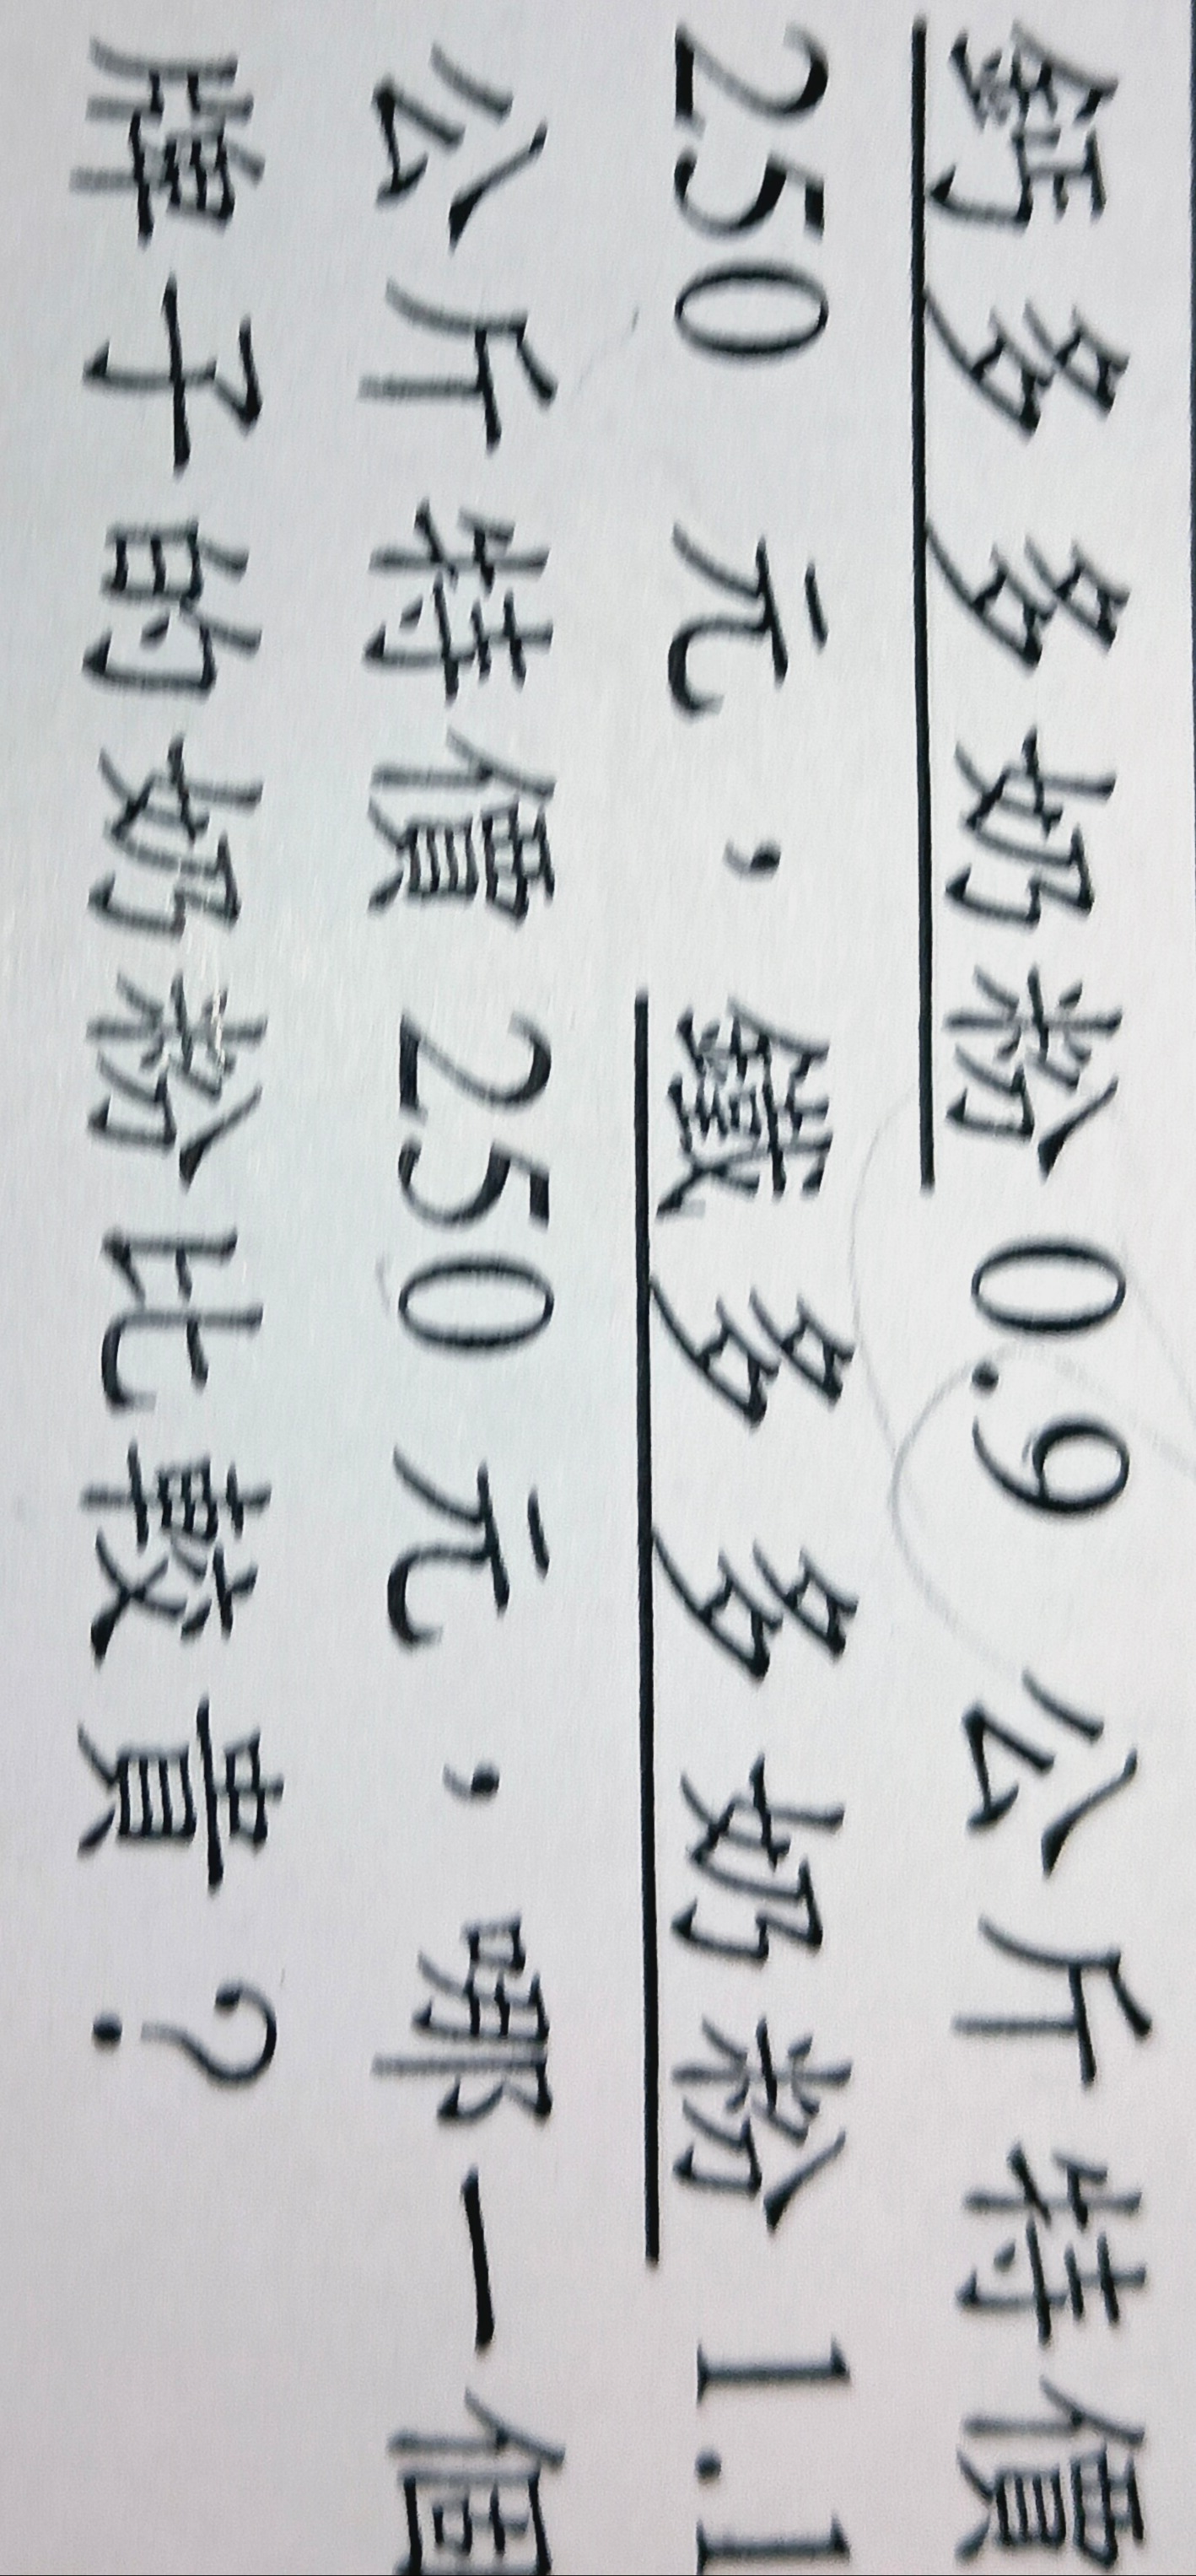 鈣多多奶粉0.9公斤特價
250元，鐵多多奶粉1.1
公斤特價250元，哪一個
牌子的奶粉比較貴？